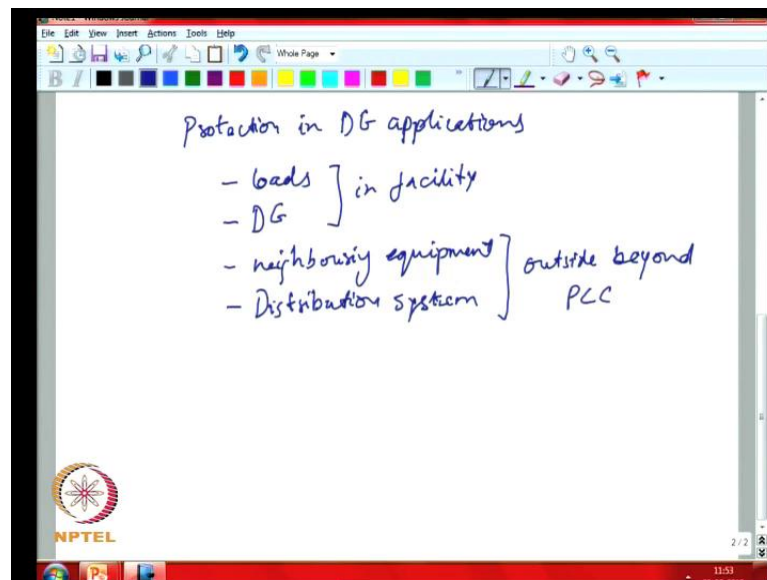 File Edit View Insert Actions Tools Help
Whole Page
B I
Protection in DG applications
- loads
- DG
in facility
- neighbouring equipment
- Distribution system
outside beyond
PCC
NPTEL
2/2
11:53